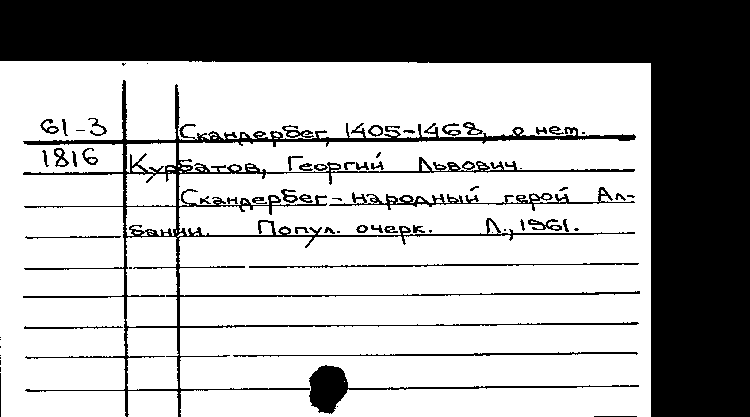 61-3 Скандербег, 1405-1468, о нем.
1816 Курбатов, Георгий Львович.
Скандербег - народный герой Ал-
бании. Попул. очерк. Л., 1961.